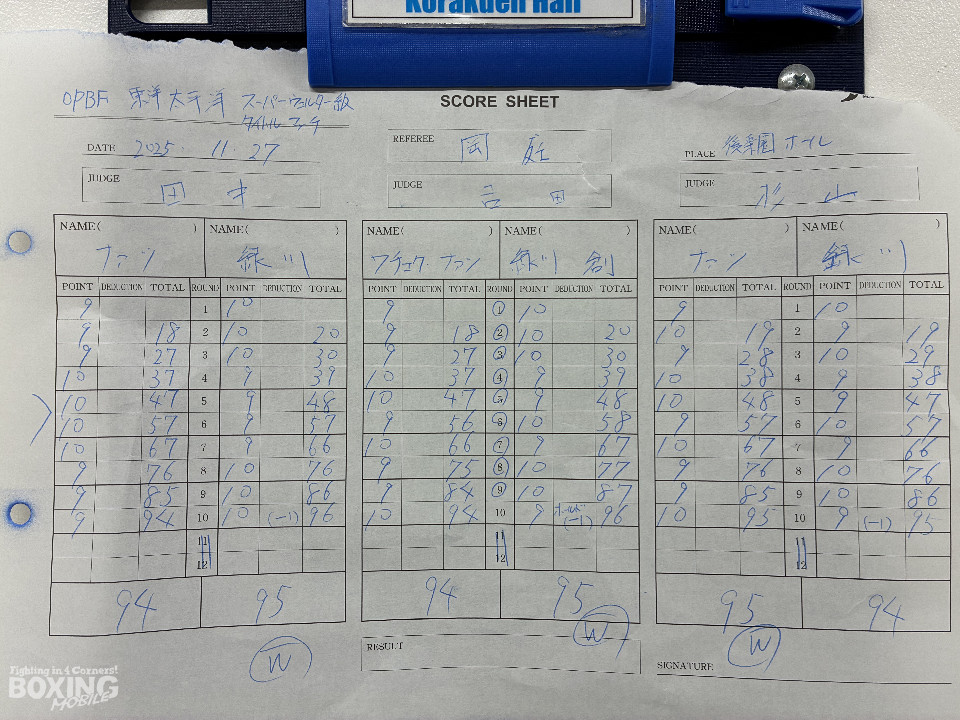 Korakuen Hall
OPBF 東洋太平洋 スーパーウェルター級
タイトルマッチ
SCORE SHEET
DATE 2025. 11. 27
REFEREE 岡庭
PLACE 後楽園ホール
JUDGE 田中
JUDGE 吉田
JUDGE 杉山
NAME( ) NAME( ) NAME( ) NAME( ) NAME( ) NAME( )
緑川 ワチュク・ナァツ 緑川 創 ナァツ 緑川
POINT DEDUCTION TOTAL ROUND POINT DEDUCTION TOTAL POINT DEDUCTION TOTAL ROUND POINT DEDUCTION TOTAL POINT DEDUCTION TOTAL ROUND POINT DEDUCTION TOTAL
9 1 10 9 1 10 9 1 10
9 18 2 10 20 9 18 2 10 20 10 19 2 9 19
9 27 3 10 30 9 27 3 10 30 9 28 3 10 29
10 37 4 9 39 10 37 4 9 39 10 38 4 9 38
10 47 5 9 48 10 47 5 9 48 10 48 5 9 47
10 57 6 9 57 9 56 6 10 58 9 57 6 10 57
10 67 7 9 66 10 66 7 9 67 10 67 7 9 66
9 76 8 10 76 9 75 8 10 77 9 76 8 10 76
9 85 9 10 86 9 84 9 10 87 9 85 9 10 86
9 94 10 10 (-1) 96 10 94 10 9 ホールド (-1) 96 10 95 10 9 (-1) 95
11 11 11
12 12 12
94 95 94 95 95 94
W W W
RESULT
SIGNATURE
Fighting in 4 Corners!
BOXING
MOBILE